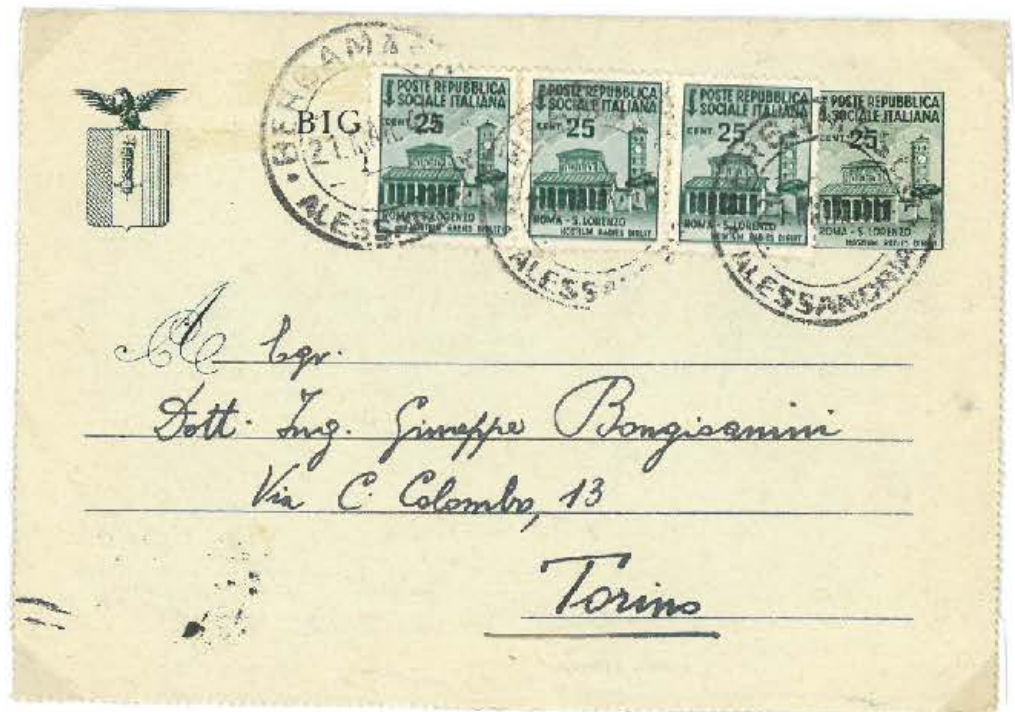 BIG
POSTE REPUBBLICA
SOCIALE ITALIANA
25
ROMA - S. LORENZO
HOSTIUM RABIES DIRUIT
POSTE REPUBBLICA
SOCIALE ITALIANA
CENT. 25
ROMA - S. LORENZO
HOSTIUM RABIES DIRUIT
POSTE REPUBBLICA
SOCIALE ITALIANA
CENT. 25
ROMA - S. LORENZO
HOSTIUM RABIES DIRUIT
POSTE REPUBBLICA
SOCIALE ITALIANA
CENT. 25
ROMA - S. LORENZO
HOSTIUM RABIES DIRUIT
BERGAMA
21
ALESS
ALESS
ALESSANDRIA
A Egr.
Dott. Ing. Giuseppe Bongioannini
Via C. Colombo, 13
Torino